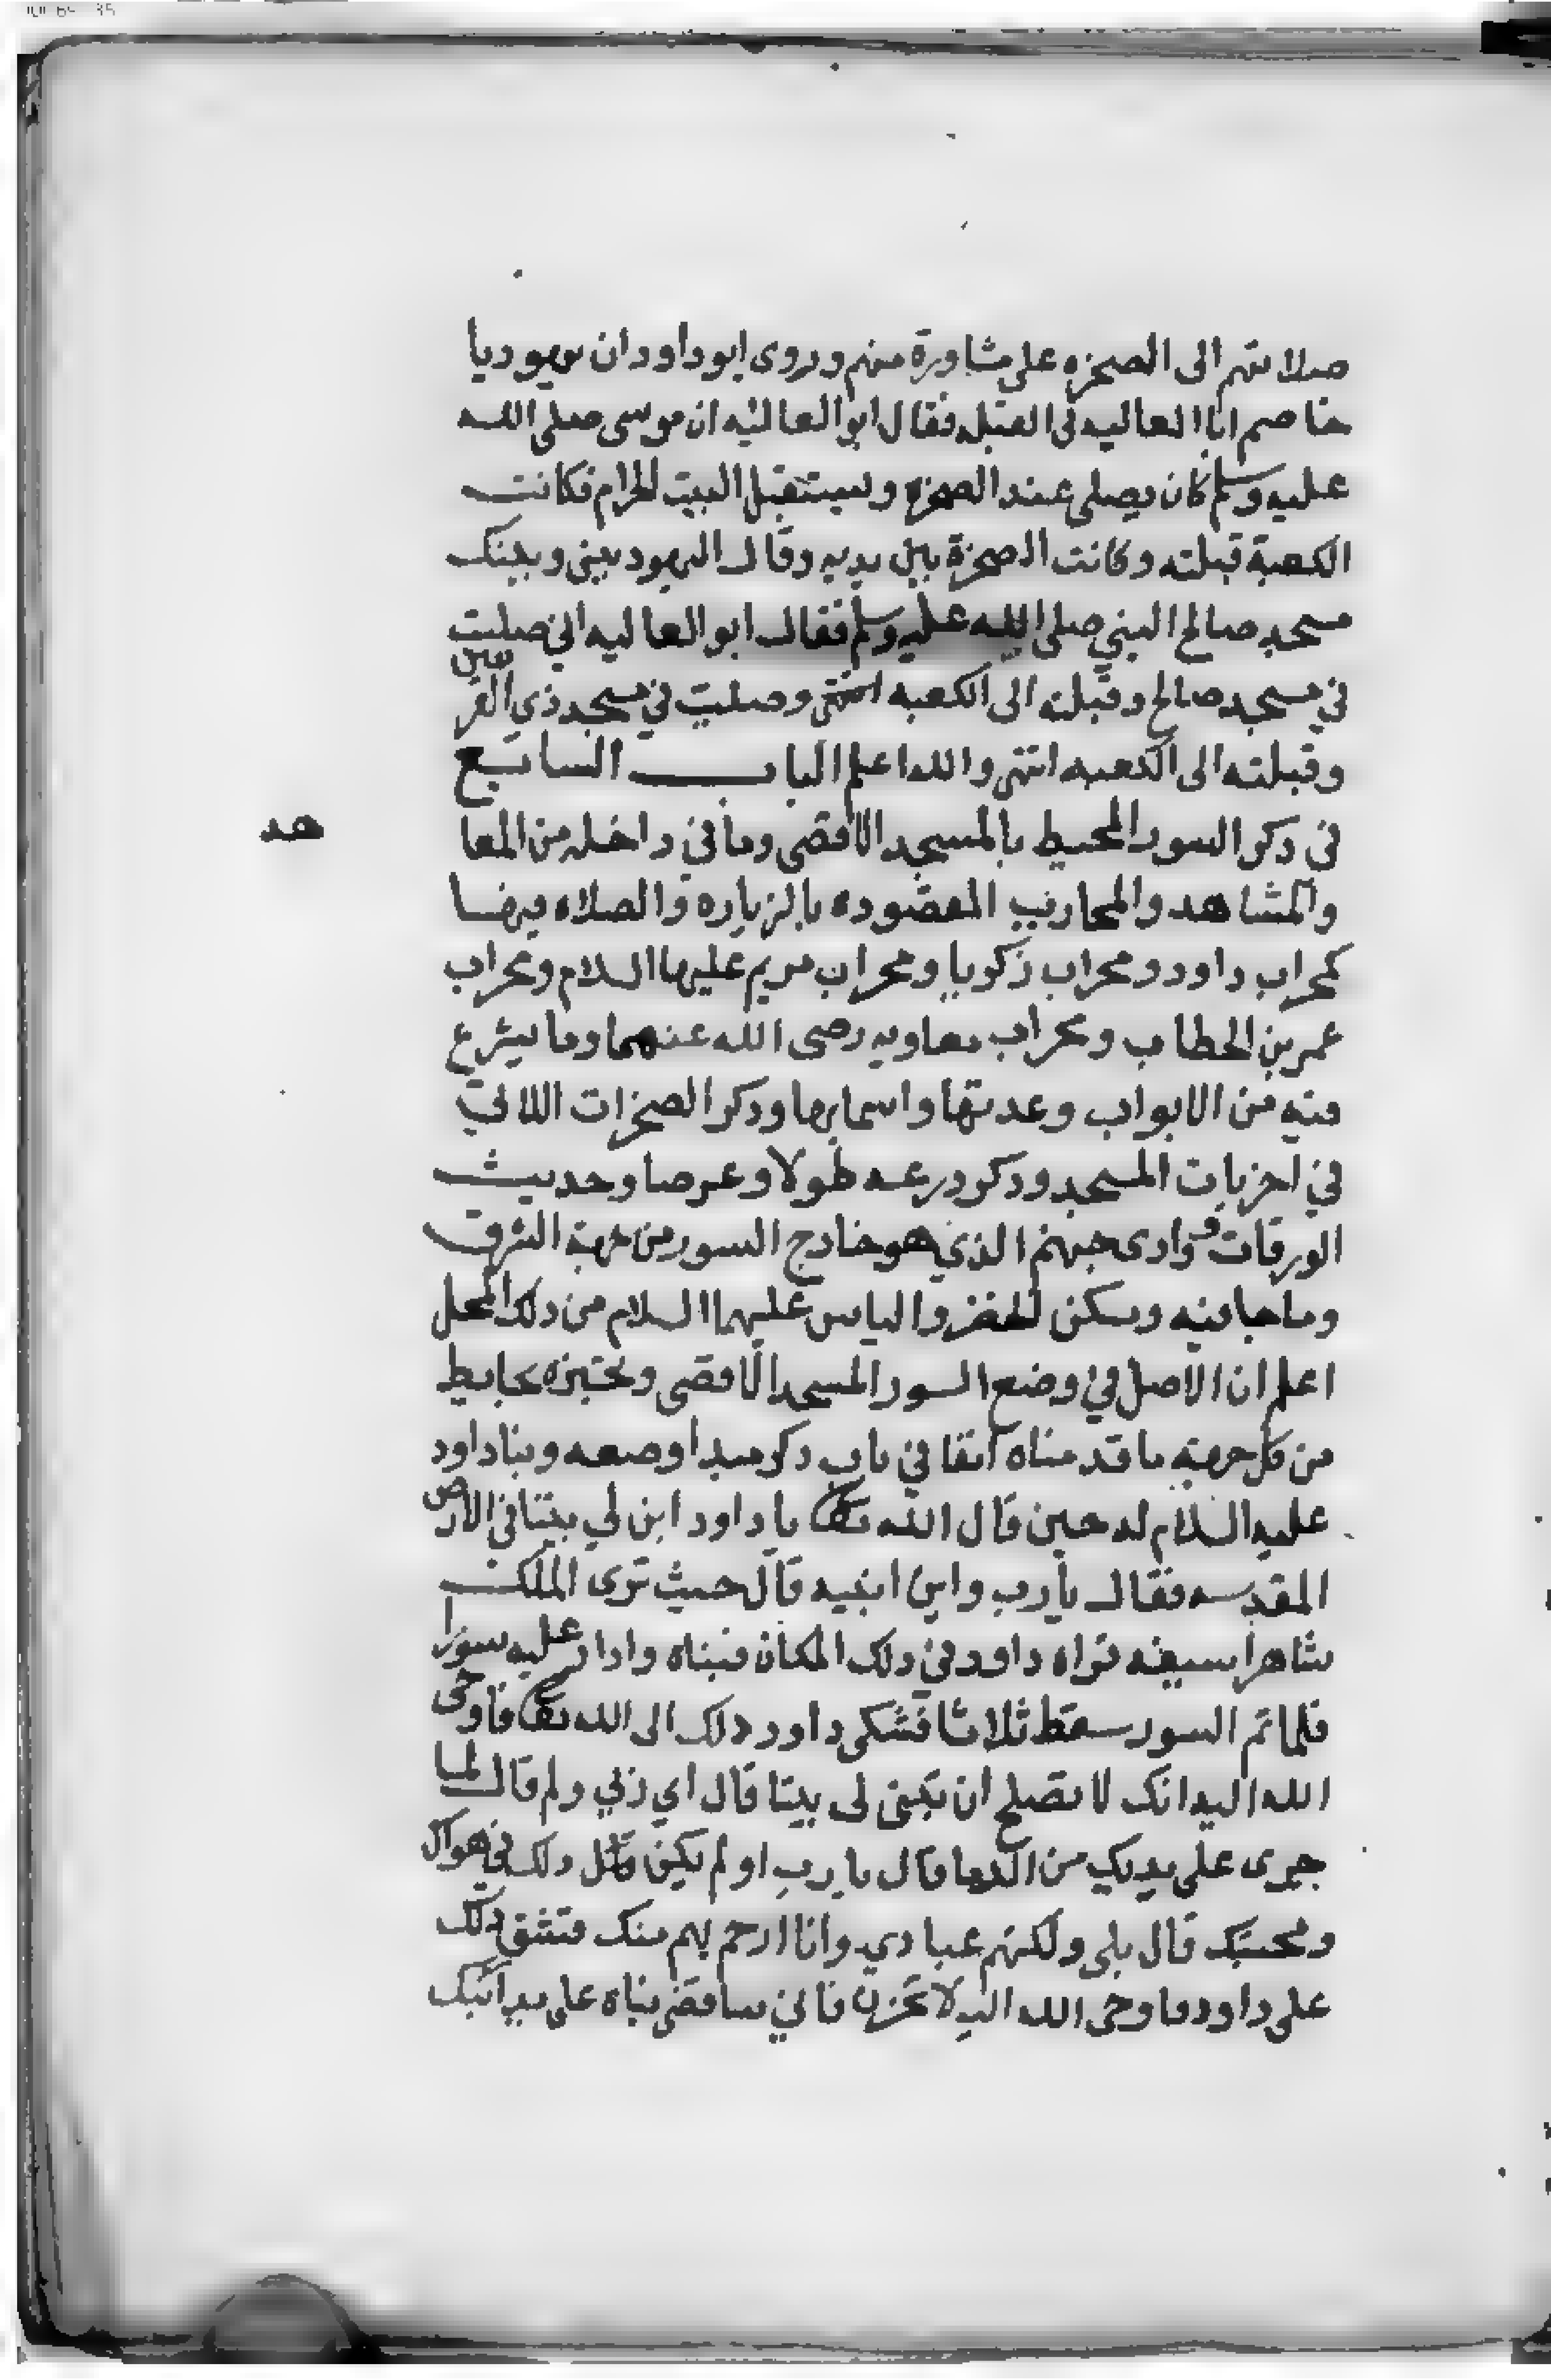 صلاتهم الى الصخره على مشاورة منهم وروى ابو داود ان يهوديا
خاصم ابا العاليه فى القبله فقال ابو العاليه ان موسى صلى الله
عليه وسلم كان يصلى عند الصخرة ويستقبل البيت الحرام فكانت
الكعبة قبلته وكانت الصخرة بين يديه وقال اليهود بينى وبينك
مسجد صالح النبي صلى الله عليه وسلم فقال ابو العاليه انى صليت
في مسجد صالح وقبلته الى الكعبه انتهى وصليت في مسجد ذي القرنين
وقبلته الى الكعبه انتهى والله اعلم الباب السابع
فى ذكر السور المحيط بالمسجد الاقصى وما في داخله من المعا
هد
والمشاهد والمحاريب المقصوده بالزياره والصلاه فيها
كمحراب داود ومحراب زكريا ومحراب مريم عليها السلام ومحراب
عمر بن الخطاب ومحراب معاويه رضى الله عنهما وما يشرع
منه من الابواب وعدتها واسمايها وذكر الصخرات اللاتى
في اخريات المسجد وذكر ذرعه طولا وعرضا وحديث
الورقات ووادى جهنم الذي هو خارج السور من جهة الشرق
وما جا فيه ومسكن الخضر والياس عليهما السلام من ذلك المحل
اعلم ان الاصل في وضع السور المسجد الاقصى وتحيزه بحايط
من كل جهة ما قدمناه انفا في باب ذكر مبدا وضعه وبنا داود
عليه السلام له حين قال الله تعالى يا داود ابن لي بيتا فى الارض
المقدسه فقال يارب واين ابنيه قال حيث ترى الملك
شاهرا سيفه فراه داود في ذلك المكان فبناه وادار عليه سورا
فلما تم السور سقط ثلاثا فشكى داود ذلك الى الله تعالى فاوحى
الله اليه انك لا تصلح ان تبنى لى بيتا قال اي ربي ولم قال لما
جرى على يديك من الدما قال يا رب او لم يكن ذلك في هواك
ومحبتك قال بلى ولكنهم عبادي وانا ارحم بهم منك فشق ذلك
على داود فاوحى الله اليه لا تحزن فاني ساقضى بناه على يد ابنك